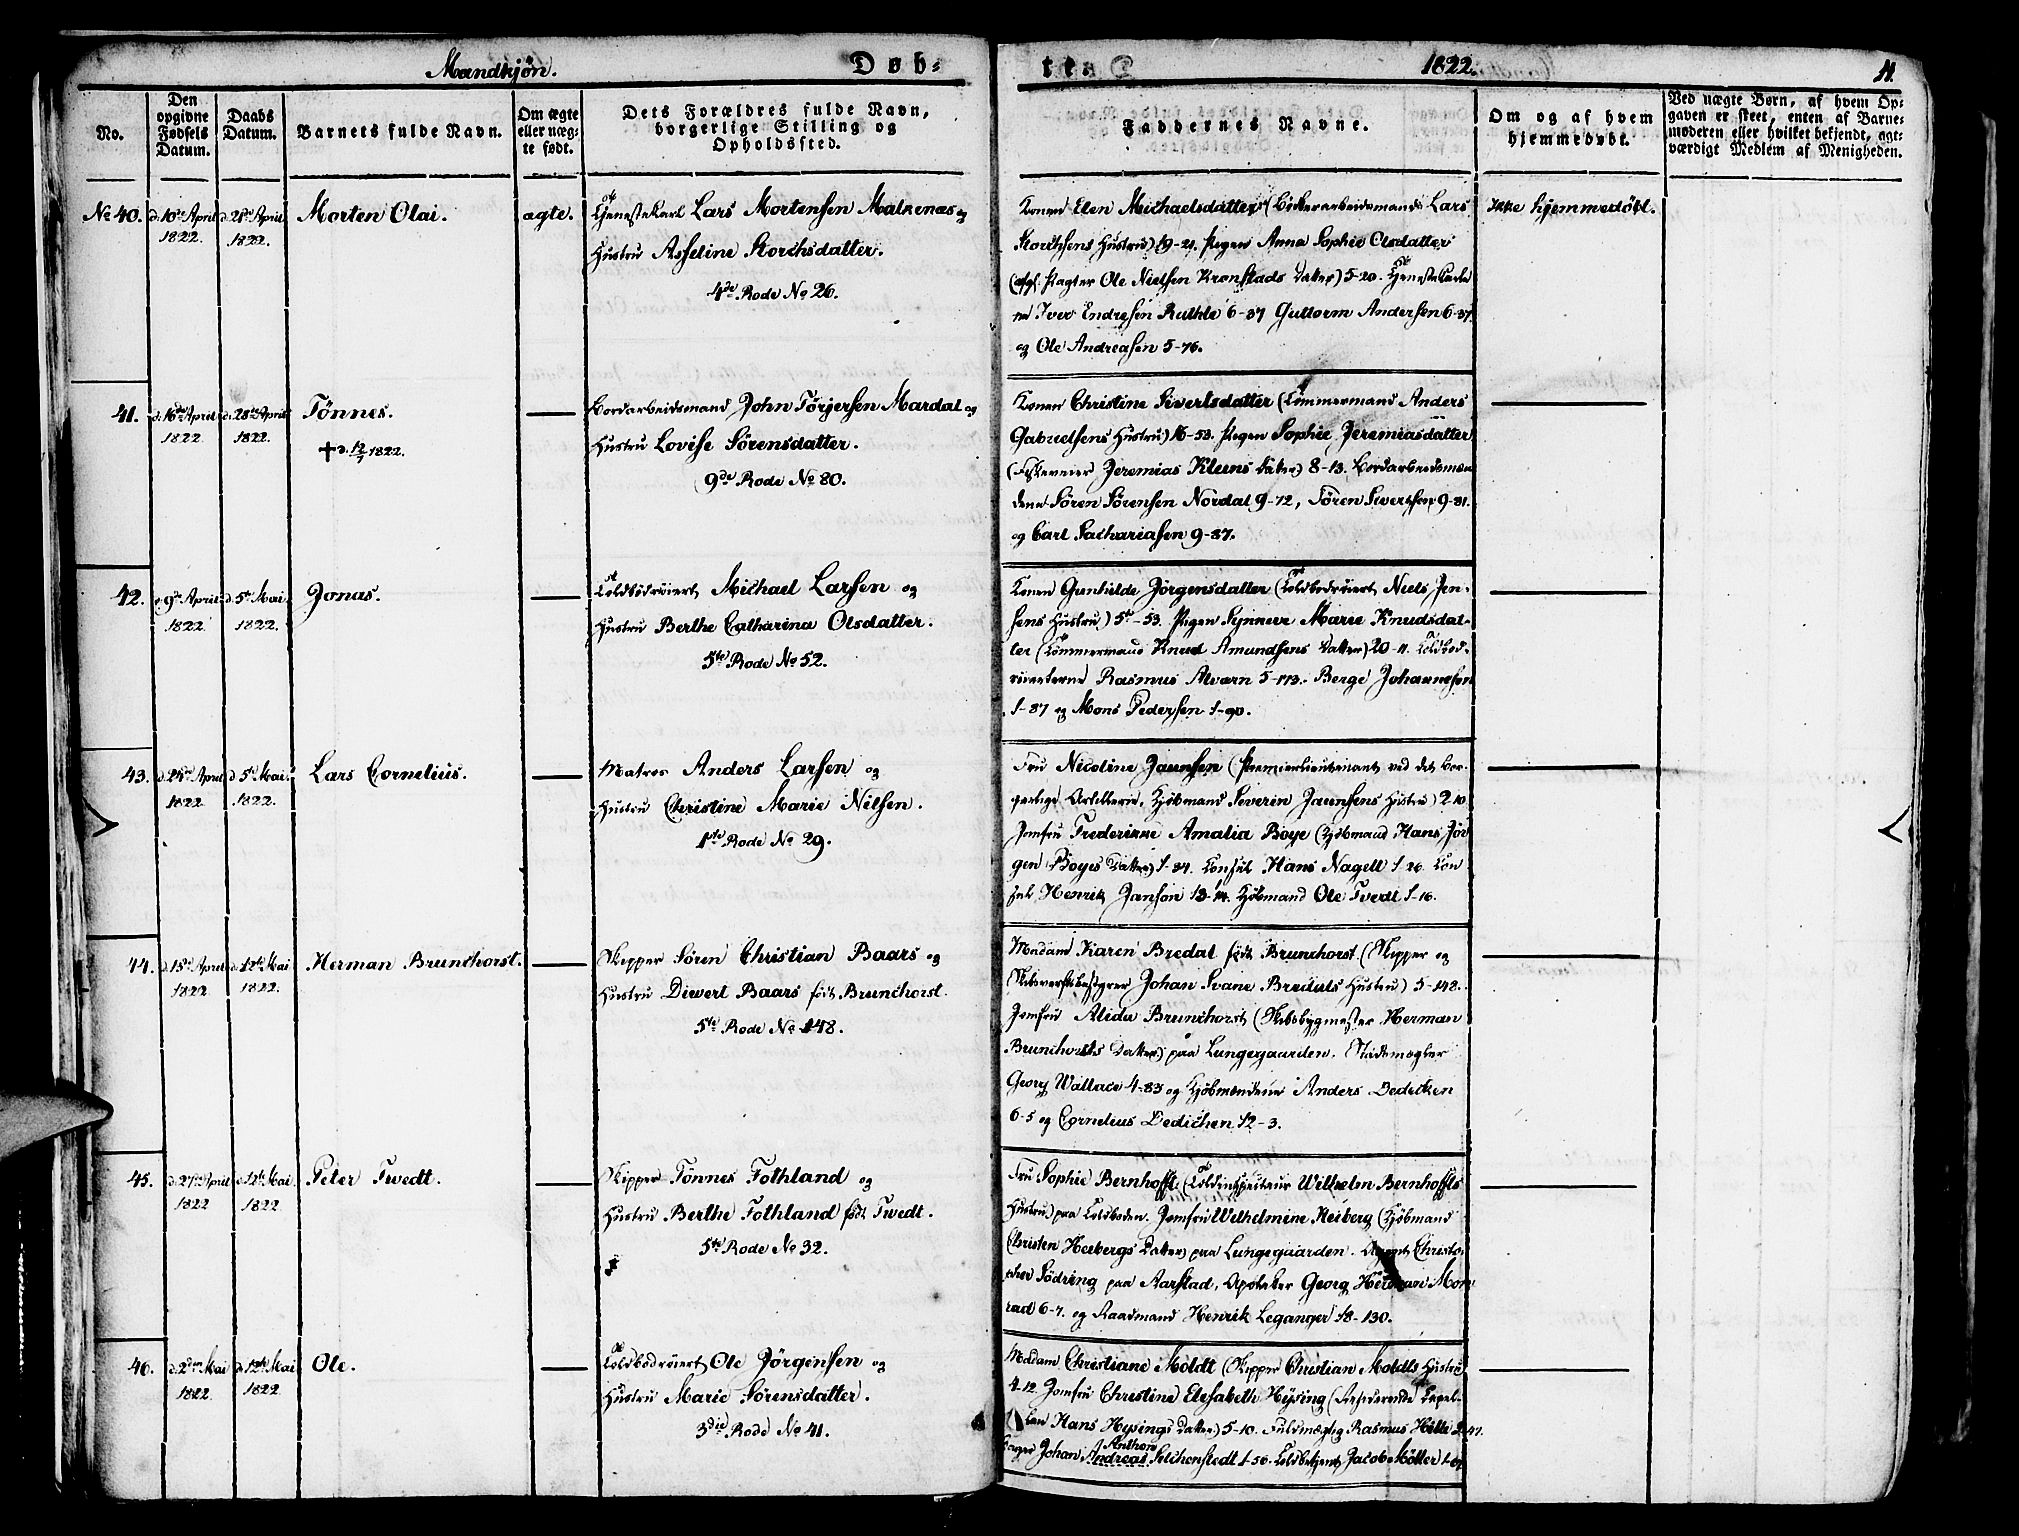 Mandkjøn. Døb-
te. 1822. 11.
No.
Den opgivne Fødsels Datum.
Daabs Datum.
Barnets fulde Navn.
Om ægte eller uæg-te født.
Dets Forældres fulde Navn, borgerlige Stilling og Opholdssted.
Faddernes Navne.
Om og af hvem hjemmedøbt.
Ved uægte Børn, af hvem Op-
gaven er skeet, enten af Barne-
moderen eller hvilket bekjendt, agt-
værdigt Medlem af Menigheden.
No 40. d. 10de April 1822. d. 21de April 1822. Morten Olai. ægte.
Tjenestekarl Lars Mortensen Malkenæs og
Hustru Asseline Storchsdatter.
4de Rode No 26.
Konen Elen Michaelsdatter (Lars
Hustru) 19-21. Pigen Anna Sophie Olsdatter
(afgl. Pagter Ole Nielsen Kronstads Datter) 5-20. Tjenestekarle
ne Iver Endresen Ruthle 6-37 Guttorm Andersen 6-37
og Ole Andreasen 5-76.
Ikke hjemmedöbt.
41. d. 16de April 1822. d. 28de April 1822. Tönnes.
† d. 12/7 1822.
Bordarbeidsmand John Törjersen Mardal og
Hustru Lovise Sörensdatter.
9de Rode No 80.
Konen Christine Sivertsdatter (Tömmermand Anders
Gabrielsens Hustru) 16-53. Pigen Sophie Jeremiasdatter
(Jeremias Kluns Datter) 8-13. Bordarbeidsmæn
dene Sören Sörensen Nordal 9-72, Sören Sivertsen 9-81.
og Carl Sachariasen 9-37.
42. d. 9de April 1822. d. 5te Mai 1822. Jonas.
Toldbodroiert Michael Larsen og
Hustru Berthe Catharina Olsdatter.
5te Rode No 52.
Konen Gunhilde Jörgensdatter (Toldbodroiert Niels Jen-
sens Hustru) 5te-53. Pigen Synneve Marie Knudsdat-
ter (Tömmermand Knud Amundsens Datter) 20-11. Toldbod-
roierterne Rasmus Alvarn 5-113. Berge Johannesen
1-87 og Mons Pedersen 1-90.
43. d. 24de April 1822. d. 5te Mai 1822. Lars Cornelius.
Matros Anders Larsen og
Hustru Christine Marie Nilsen.
1ste Rode No 29.
Fru Nicoline Jaunsen (Premierlieutenant ved det bor-
gerlige Artillerie, Kjöbmand Severin Jaunsens Hustru) 2-10.
Jomfru Frederikke Amalia Boye (Kjöbmand Hans Jör
gen Boyes Datter) 1-34. Consul Hans Nagell 1-26. Con
sul Henrik Janson 13-14. Kjöbmand Ole Tvedt 1-16.
44. d. 15de April 1822. d. 12te Mai 1822. Herman Brunchorst.
Skipper Sören Christian Baars og
Hustru Diwert Baars födt Brunchorst.
5te Rode No 148.
Madam Karen Bredal födt Brunchorst. (Skipper og
Skibsverftsbestyrer Johan Svane Bredals Hustru) 5-148.
Jomfru Alida Brunchorst (Skibsbygmester Herman
Brunchorsts Datter) paa Lungegaarden. Stadsmægler
Georg Wallace 4-83 og Kjöbmændene Anders Dedecken
6-5 og Cornelius Dedichen 12-3.
45. d. 27de April 1822 d. 12te Mai 1822. Peter Twedt.
Skipper Tönnes Fothland og
Hustru Berthe Fothland födt Twedt.
5te Rode No 32.
Fru Sophie Bernhofft (Toldinspecteur Wilhelm Bernhoffts
Hustru) paa Toldboden. Jomfru Wilhelmine Heiberg (Kjöbmand
Christen Heebergs Datter) paa Lungegaarden. Agent Christo-
pher Södring paa Aarstad, Apotheker Georg Herman Mon
rad 6-7. og Raadmand Henrik Leganger 18-130.
46. d. 2den Mai 1822 d. 12te Mai 1822. Ole.
Toldbodroiert Ole Jörgensen og
Hustru Marie Sörensdatter.
3die Rode No 41.
Madam Christiane Moldt (Skipper Christian Moldts Hustru)
4-12 Jomfru Christine Elesabeth Hysing (Capel-
lan Hans Hysings Datter) 5-10. Fuldmægtig Rasmus
Johan Anthon Andreas Selchenstedt 1-56. Toldbetjent Jacob Möller